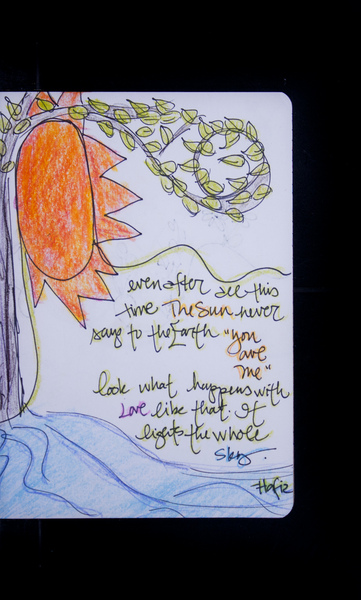 even after all this
time The Sun never
says to the Earth "you
are
me"
look what happens with
Love like that. It
lights the whole
Sky.
Hafiz